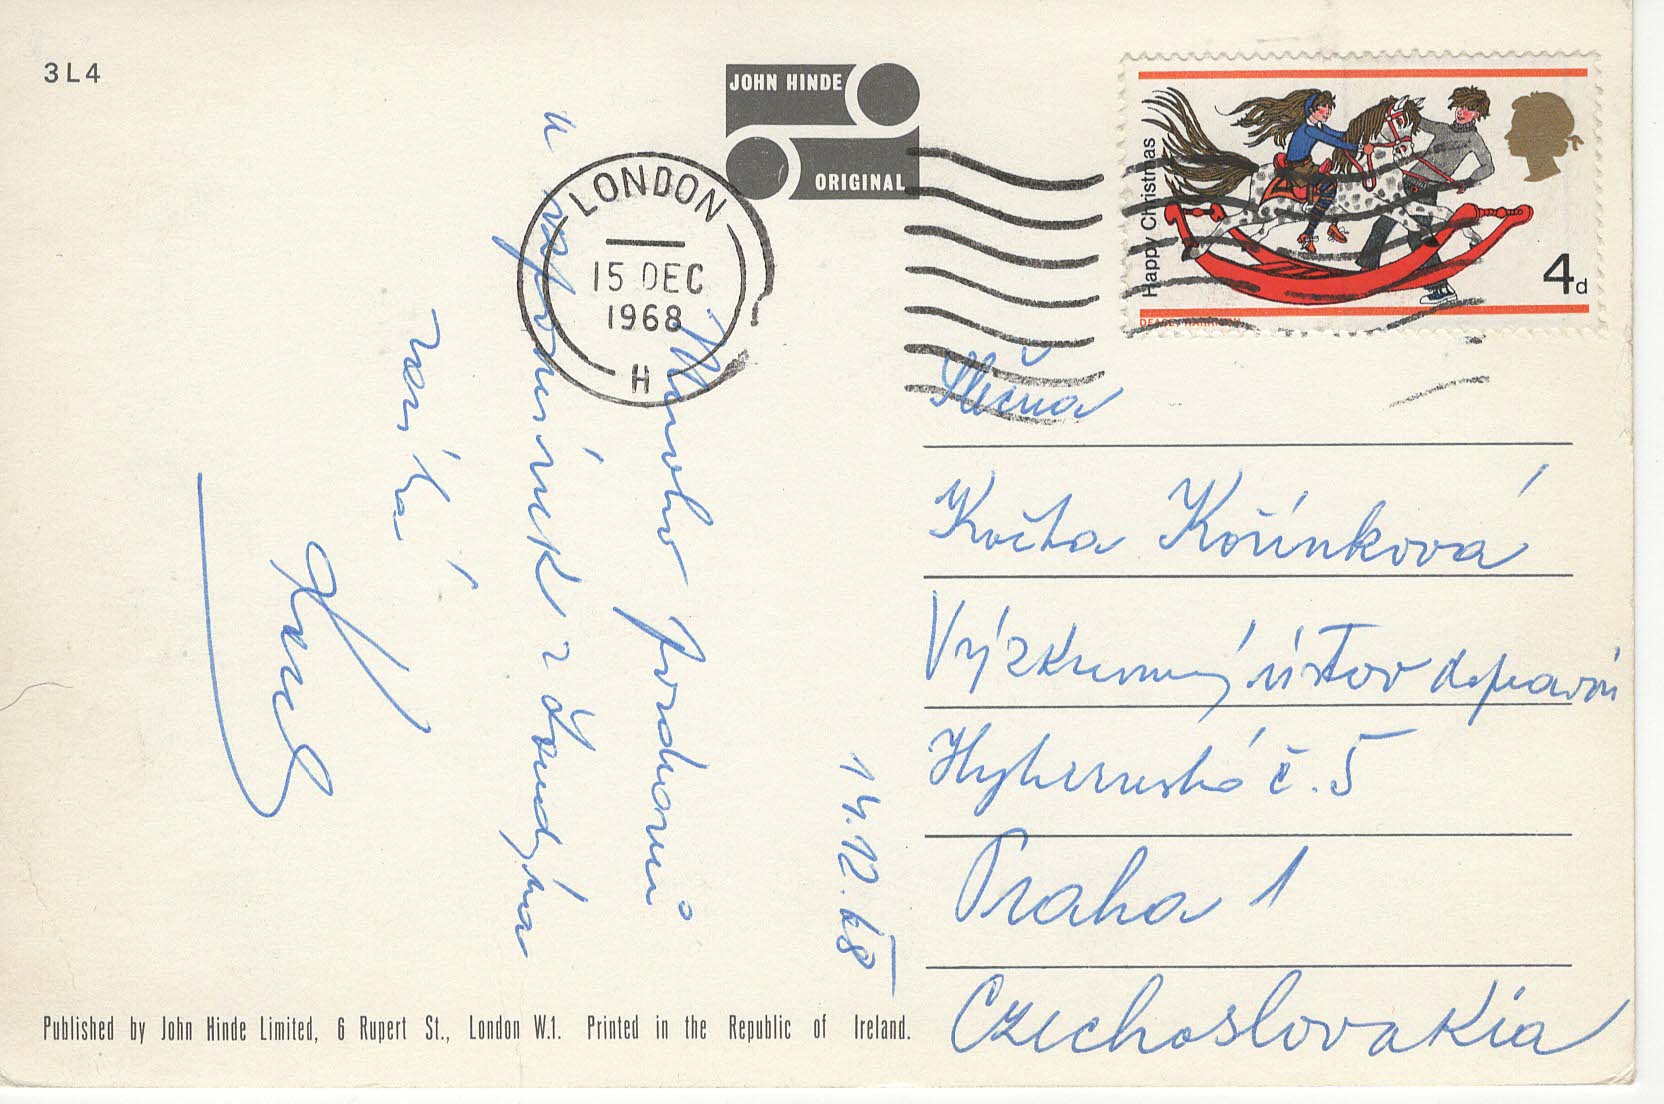 3L4
JOHN HINDE
ORIGINAL
LONDON
15 DEC
1968
H
Happy Christmas
4d
14.12.68
Mnoho pozdravů
a vzpomínek z Londýna
Slečna
Květa Kořínková
Výzkumný ústav dopravní
Hybernská č. 5
Praha 1
Czechoslovakia
Published by John Hinde Limited, 6 Rupert St., London W.1. Printed in the Republic of Ireland.